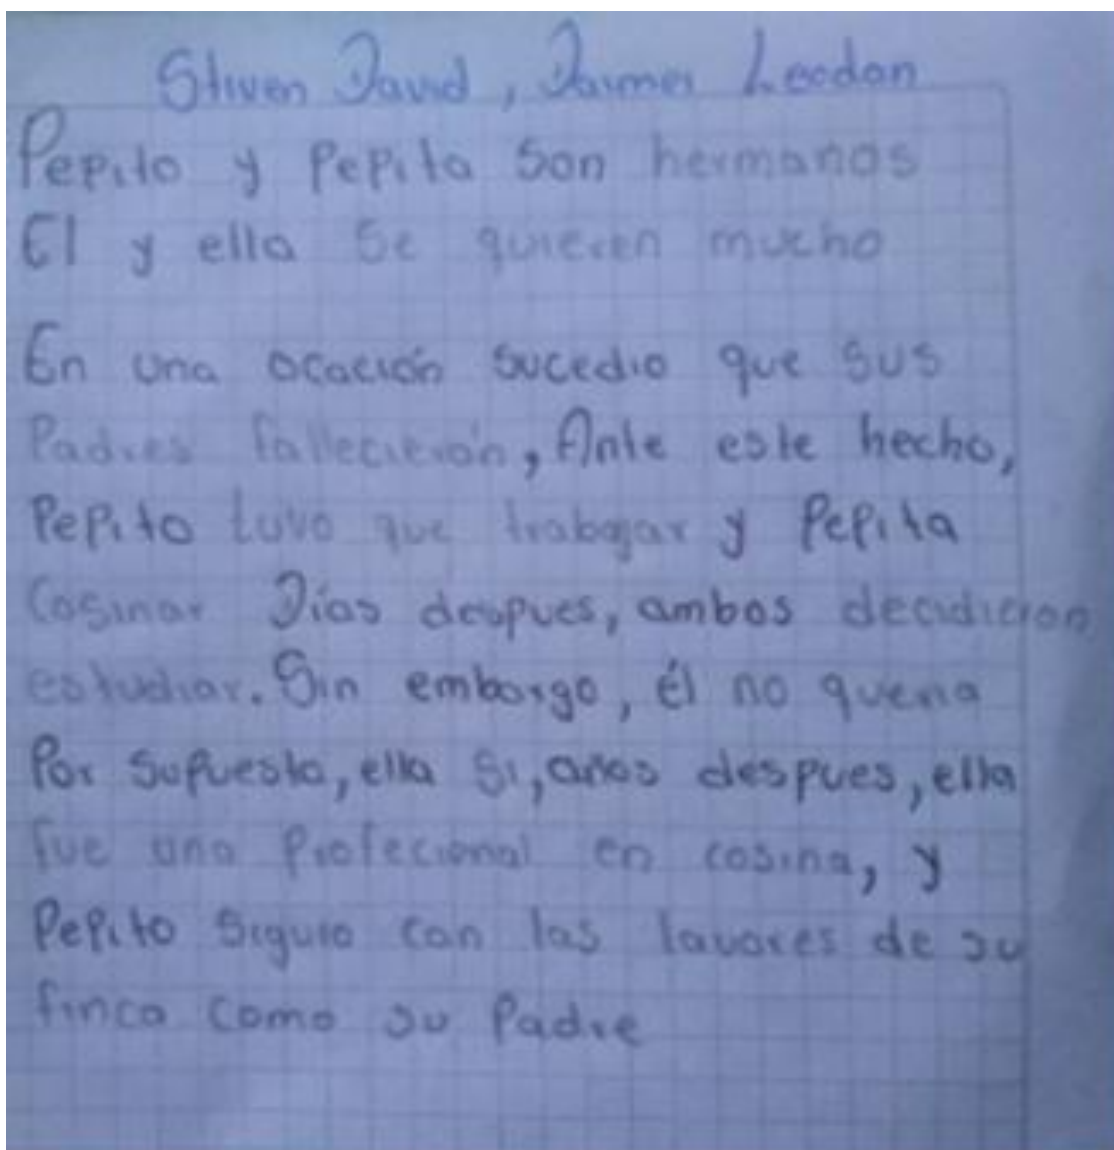 Stiven David, Jaimer Leodan
Pepito y Pepita son hermanos
El y ella se quieren mucho
En una ocación sucedio que sus
Padres fallecierón, Ante este hecho,
Pepito tuvo que trabajar y Pepita
Cosinar Días despues, ambos decidieron
estudiar. Sin embargo, él no queria
Por supuesto, ella si, años despues, ella
fue una Profecional en cosina, y
Pepito siguio con las lavores de su
finca como su Padre